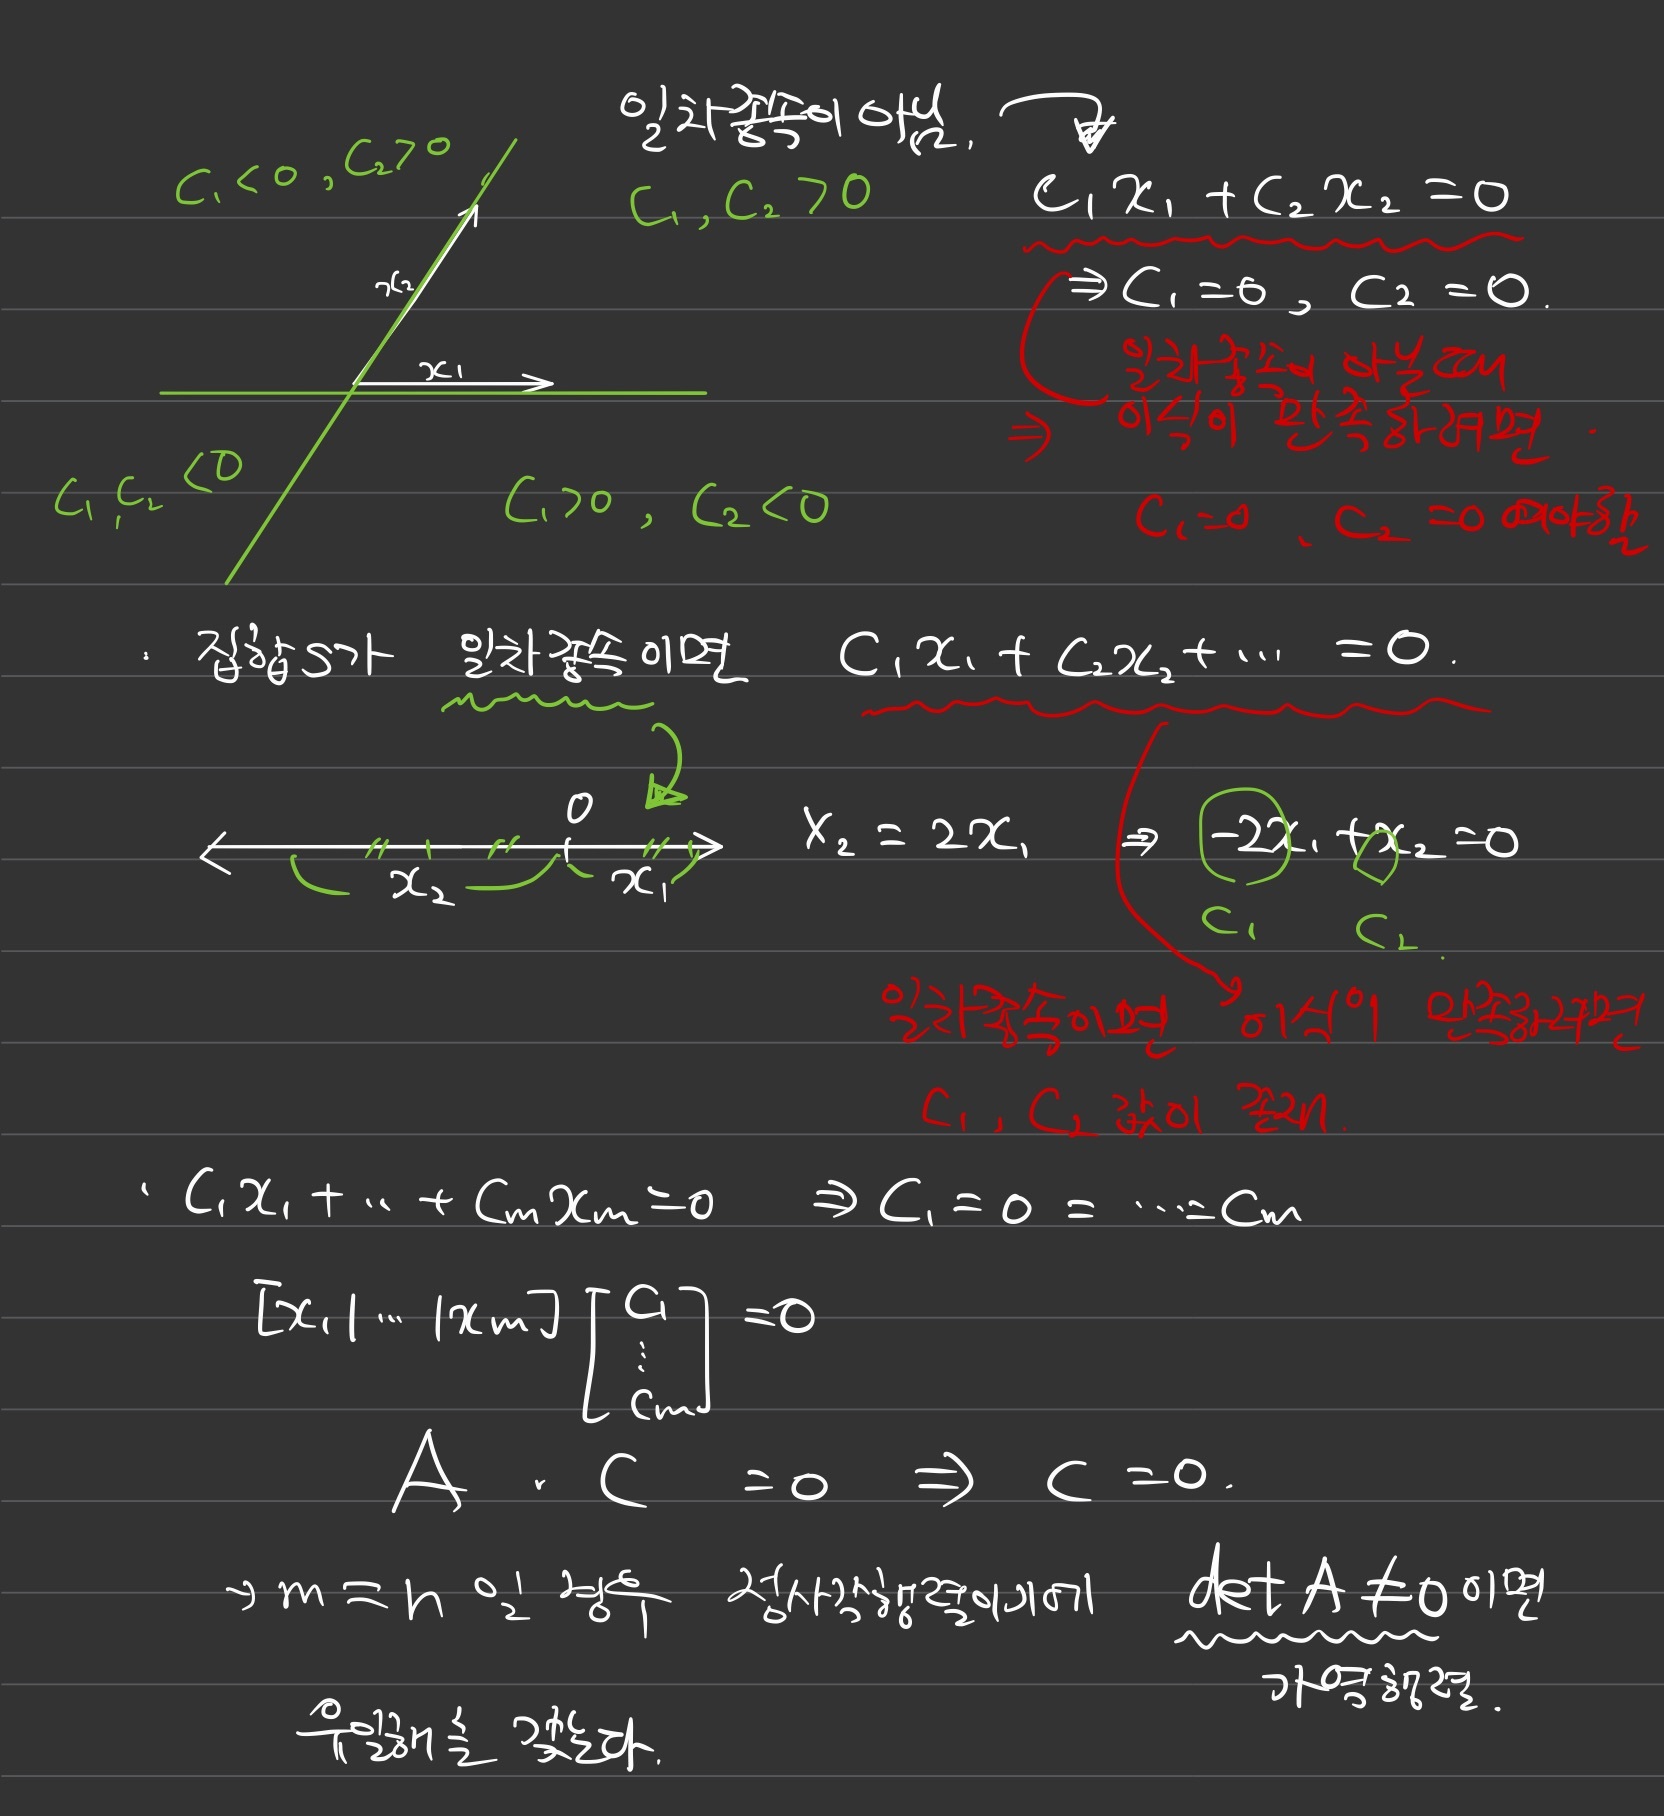 일차종속이 아님.
C₁<0, C₂>0
C₁, C₂ >0
C₁x₁ + C₂x₂ = 0
⇒ C₁=0, C₂=0.
x₂
x₁
일차종속이 아닐때
⇒ 이식이 만족하려면.
C₁, C₂ <0
C₁>0, C₂<0
C₁=0, C₂=0 여야함
· 집합S가 일차종속이면 C₁x₁ + C₂x₂ + ... = 0.
0
x₂ x₁
X₂ = 2x₁ ⇒ -2x₁ + x₂ = 0
C₁ C₂.
일차종속이면 이식이 만족하려면
C₁, C₂ 값이 존재.
· C₁x₁ + .. + Cmxm = 0 ⇒ C₁ = 0 = ... = Cm
[x₁| ... |xm] [C₁ ⋮ Cm] = 0
A · C = 0 ⇒ C = 0.
→ m = n 인 경우 정사각행렬이기에 det A ≠ 0 이면
가역행렬.
유일해를 갖는다.